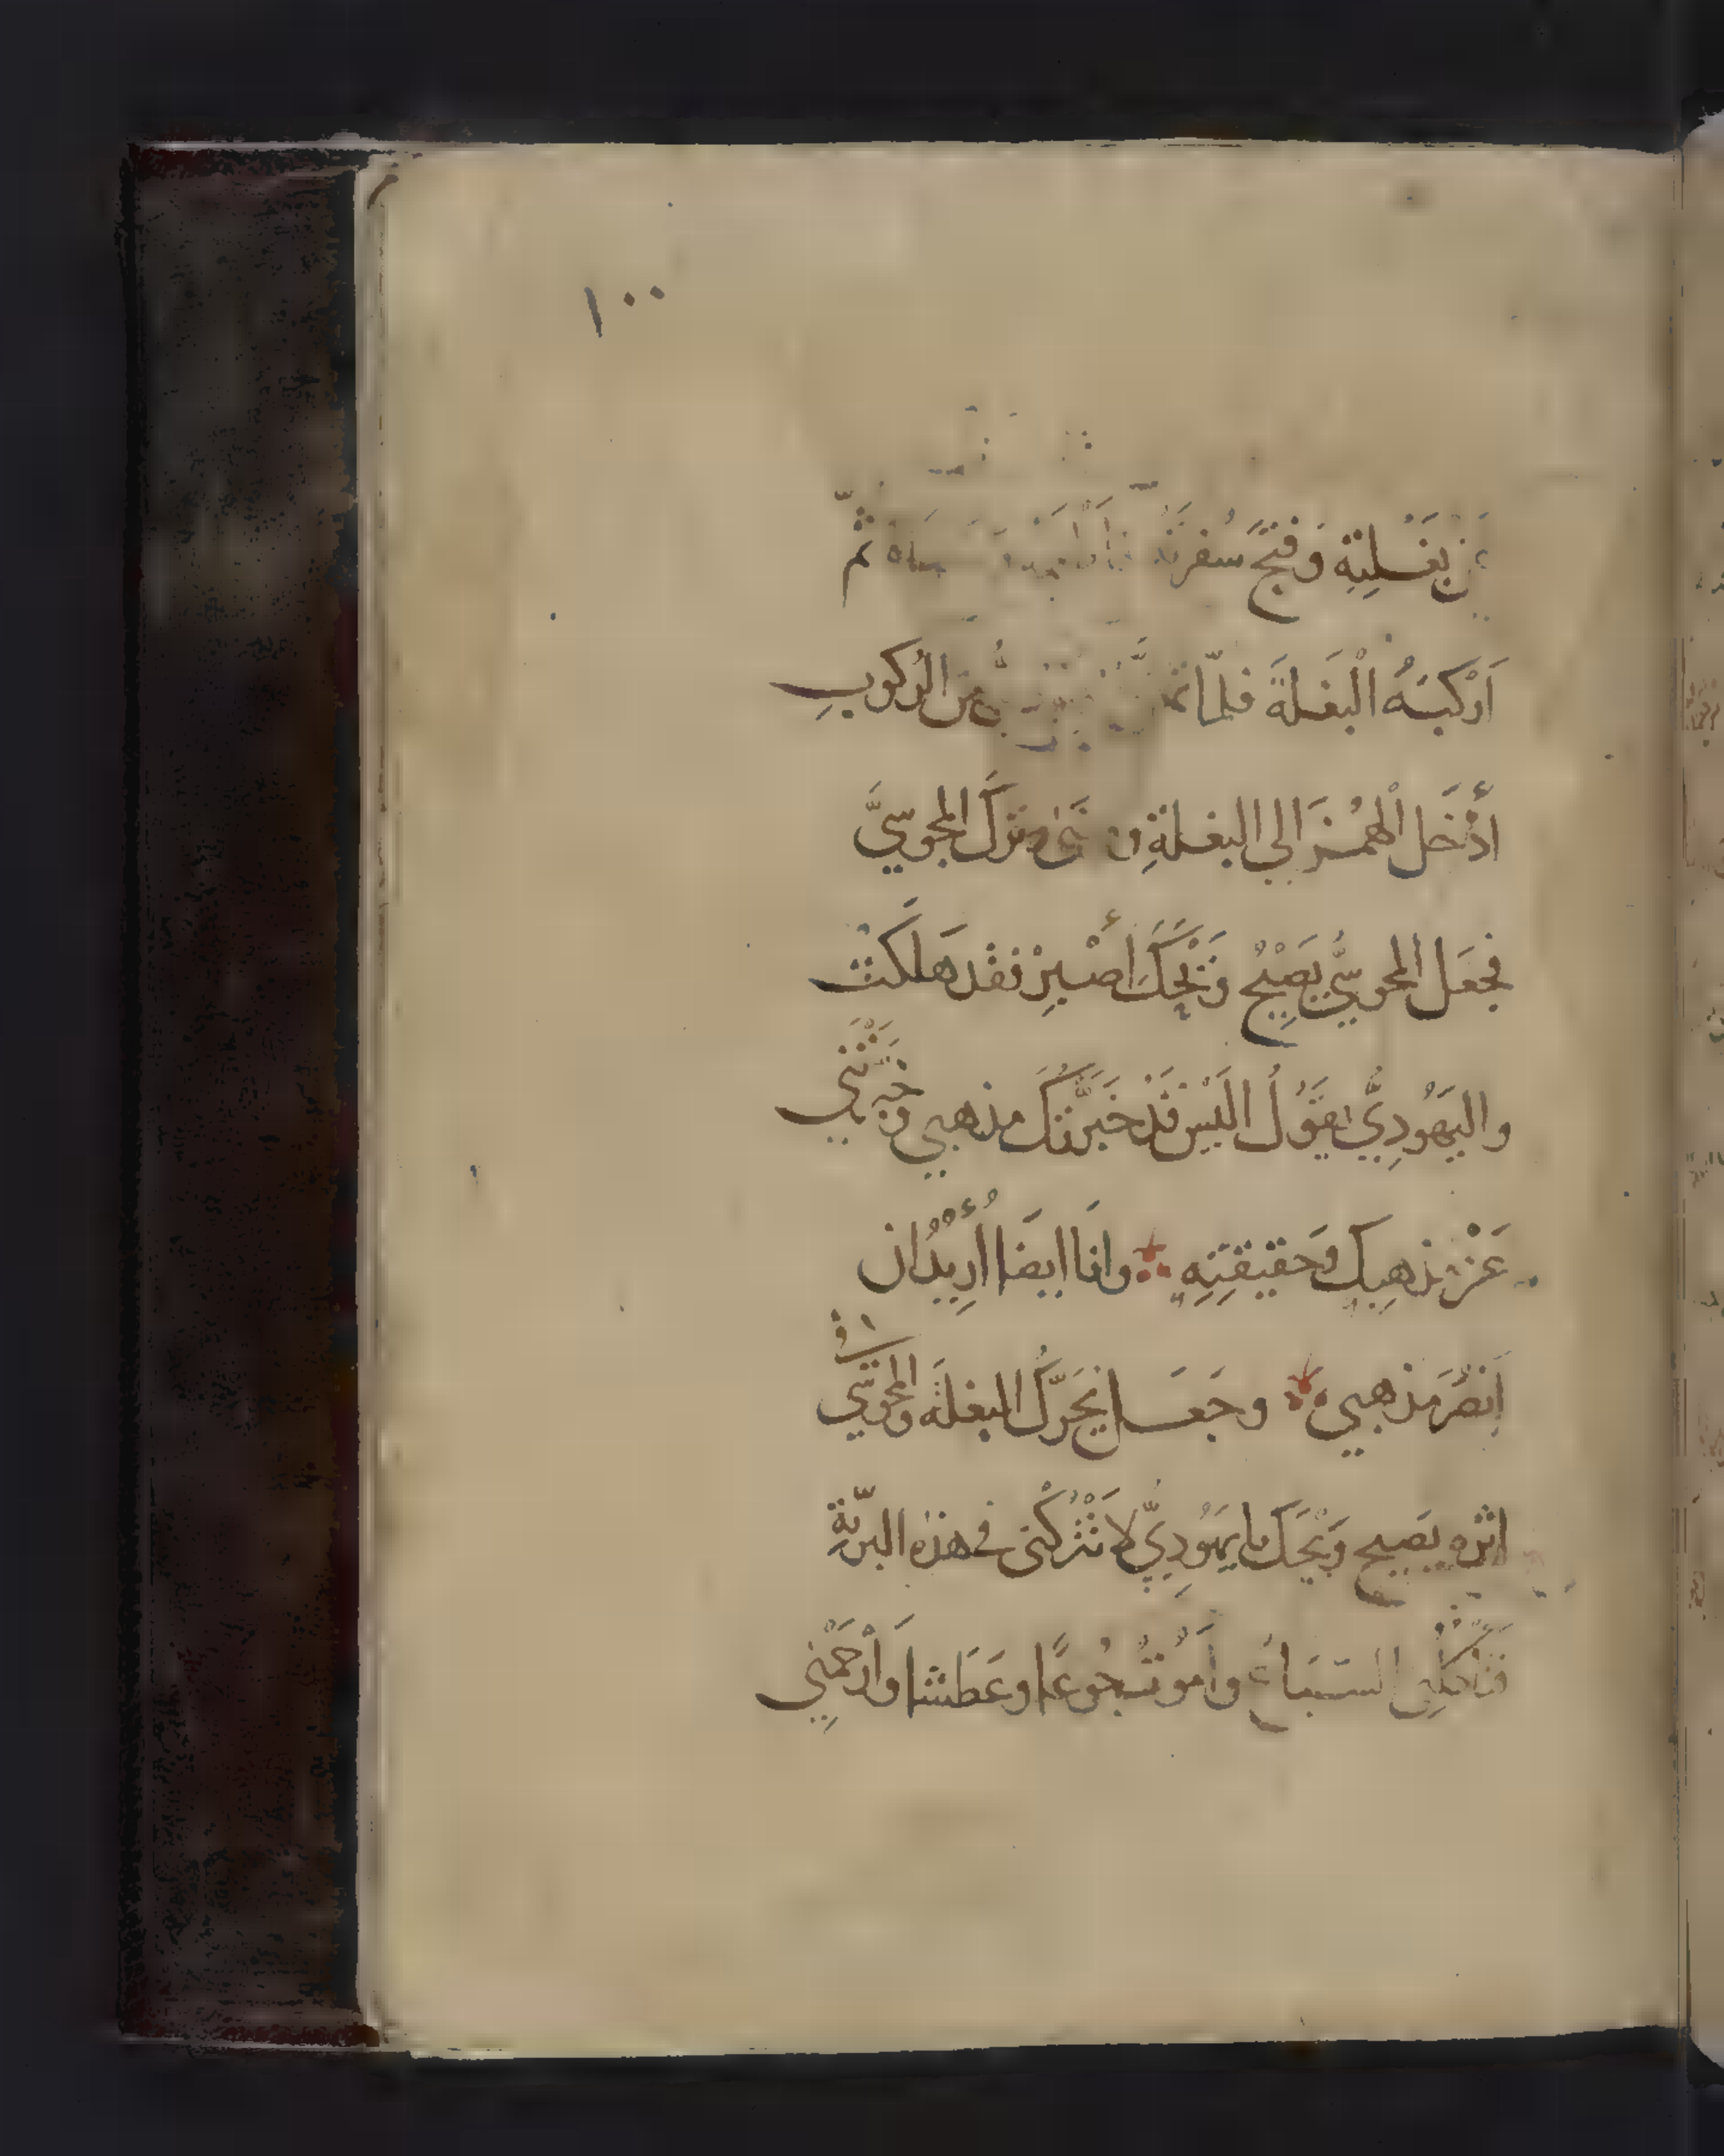 ١٠٠
عن بَغْلَتِهِ وَفَتَحَ سُفْرَتَهُ ثُمَّ
اَرْكَبَهُ الْبَغْلَةَ فلمّا من الرُكوبِ
أَدْخَل الْهَمْزَ الي البغلةِ وتركَ المجوسيَّ
فجعَل المجوسيُّ يَصِيْحُ وَيْحَكَ أَصْبِرْ فقد هَلَكْتُ
واليَهُودِيُّ يقَوُلُ الَيْسَ قَدْ خَبَّرْتُكَ مذهبي وخَبَّرْتَنِي
عَنْ مذهبِكَ وَحقيقَتِهِ وانَا ايضَا أُرِيْدُ ان
اَنْصُرَ مَذهبي وجَعَل يُحَرّكُ البغلَةَ والمجوسي في
اثره يَصيح وَيْحَكَ يا يَهُودِيُّ لا تَتْرُكْنى في هذه البرّيةِ
فَتَاكُلَنِي السّبَاعُ واَموُتُ جُوعًا وعَطَشا وَاَرْحَمْنِي